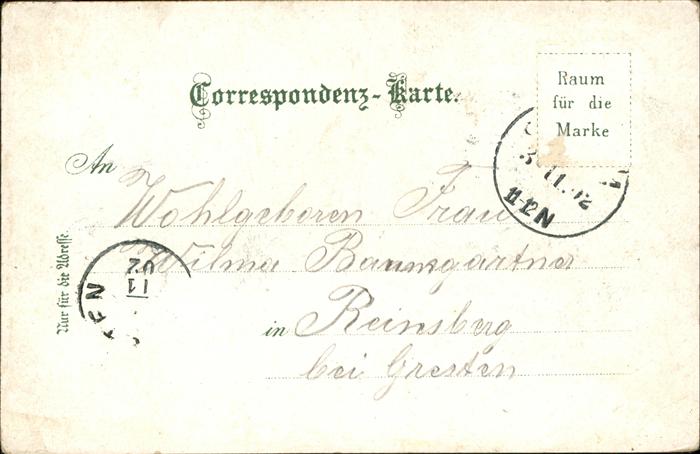 Correspondenz-Karte.
Raum
für die
Marke
An
Wohlgeboren Frau
Wilma Baumgartner
in Reinsberg
bei Gresten
Nur für die Adresse.
11.02
11-12N
11
02